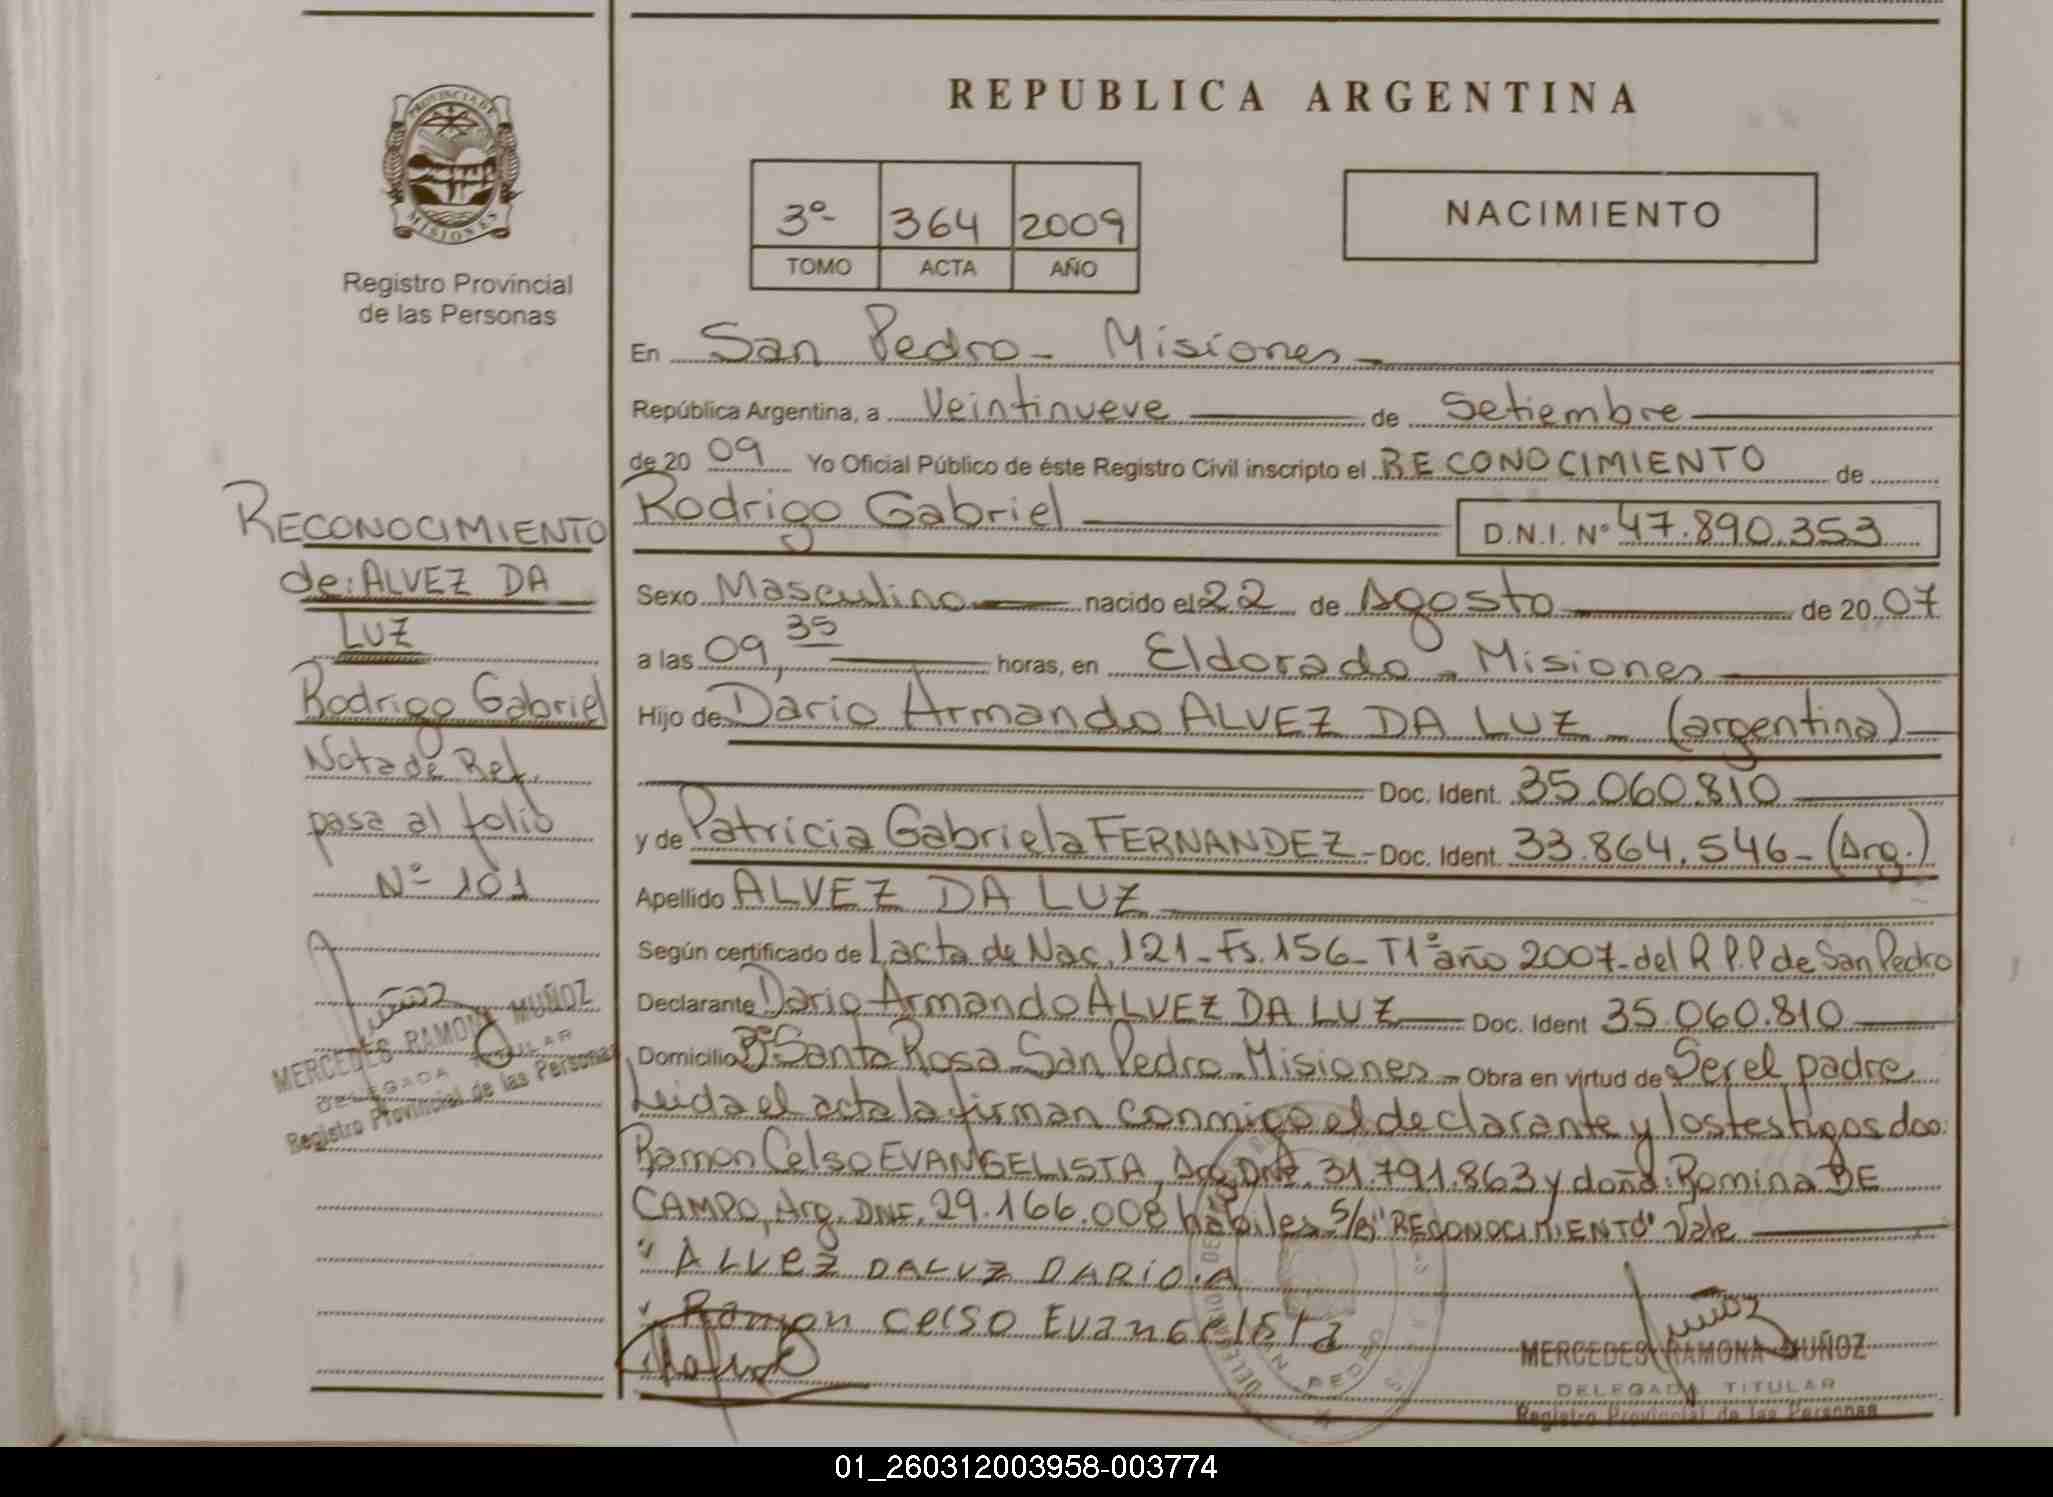 REPUBLICA ARGENTINA
PROVINCIA DE
MISIONES
Registro Provincial
de las Personas
3º 364 2009
TOMO ACTA AÑO
NACIMIENTO
En San Pedro - Misiones
República Argentina, a Veintinueve de Setiembre
de 20 09 Yo Oficial Público de éste Registro Civil inscripto el RECONOCIMIENTO de
Rodrigo Gabriel D.N.I. Nº 47.890.353
Sexo Masculino nacido el 22 de Agosto de 20 07
a las 09,35 horas, en Eldorado - Misiones
Hijo de Dario Armando ALVEZ DA LUZ - (argentina)
Doc. Ident. 35.060.810
y de Patricia Gabriela FERNANDEZ - Doc. Ident. 33.864.546 - (Arg.)
Apellido ALVEZ DA LUZ
Según certificado de acta de Nac. 121 - Fs. 156 - T1º año 2007 - del R.P.P de San Pedro
Declarante Dario Armando ALVEZ DA LUZ Doc. Ident 35.060.810
Domicilio Bº Santa Rosa - San Pedro - Misiones - Obra en virtud de Ser el padre
Leida el acta la firman conmigo el declarante y los testigos don:
Ramon Celso EVANGELISTA, Arg. DNI. 31.791.863 y doña: Romina DE
CAMPO, Arg. DNI. 29.166.008 habiles S/B "RECONOCIMIENTO" Vale
ALVEZ DALUZ DARIO.A
Ramon Celso Evangelista
MERCEDES RAMONA MUÑOZ
DELEGADA TITULAR
Registro Provincial de las Personas
RECONOCIMIENTO
de: ALVEZ DA
LUZ
Rodrigo Gabriel
Nota de Ref.
pasa al folio
Nº 101
MERCEDES RAMONA MUÑOZ
DELEGADA TITULAR
Registro Provincial de las Personas
01_260312003958-003774